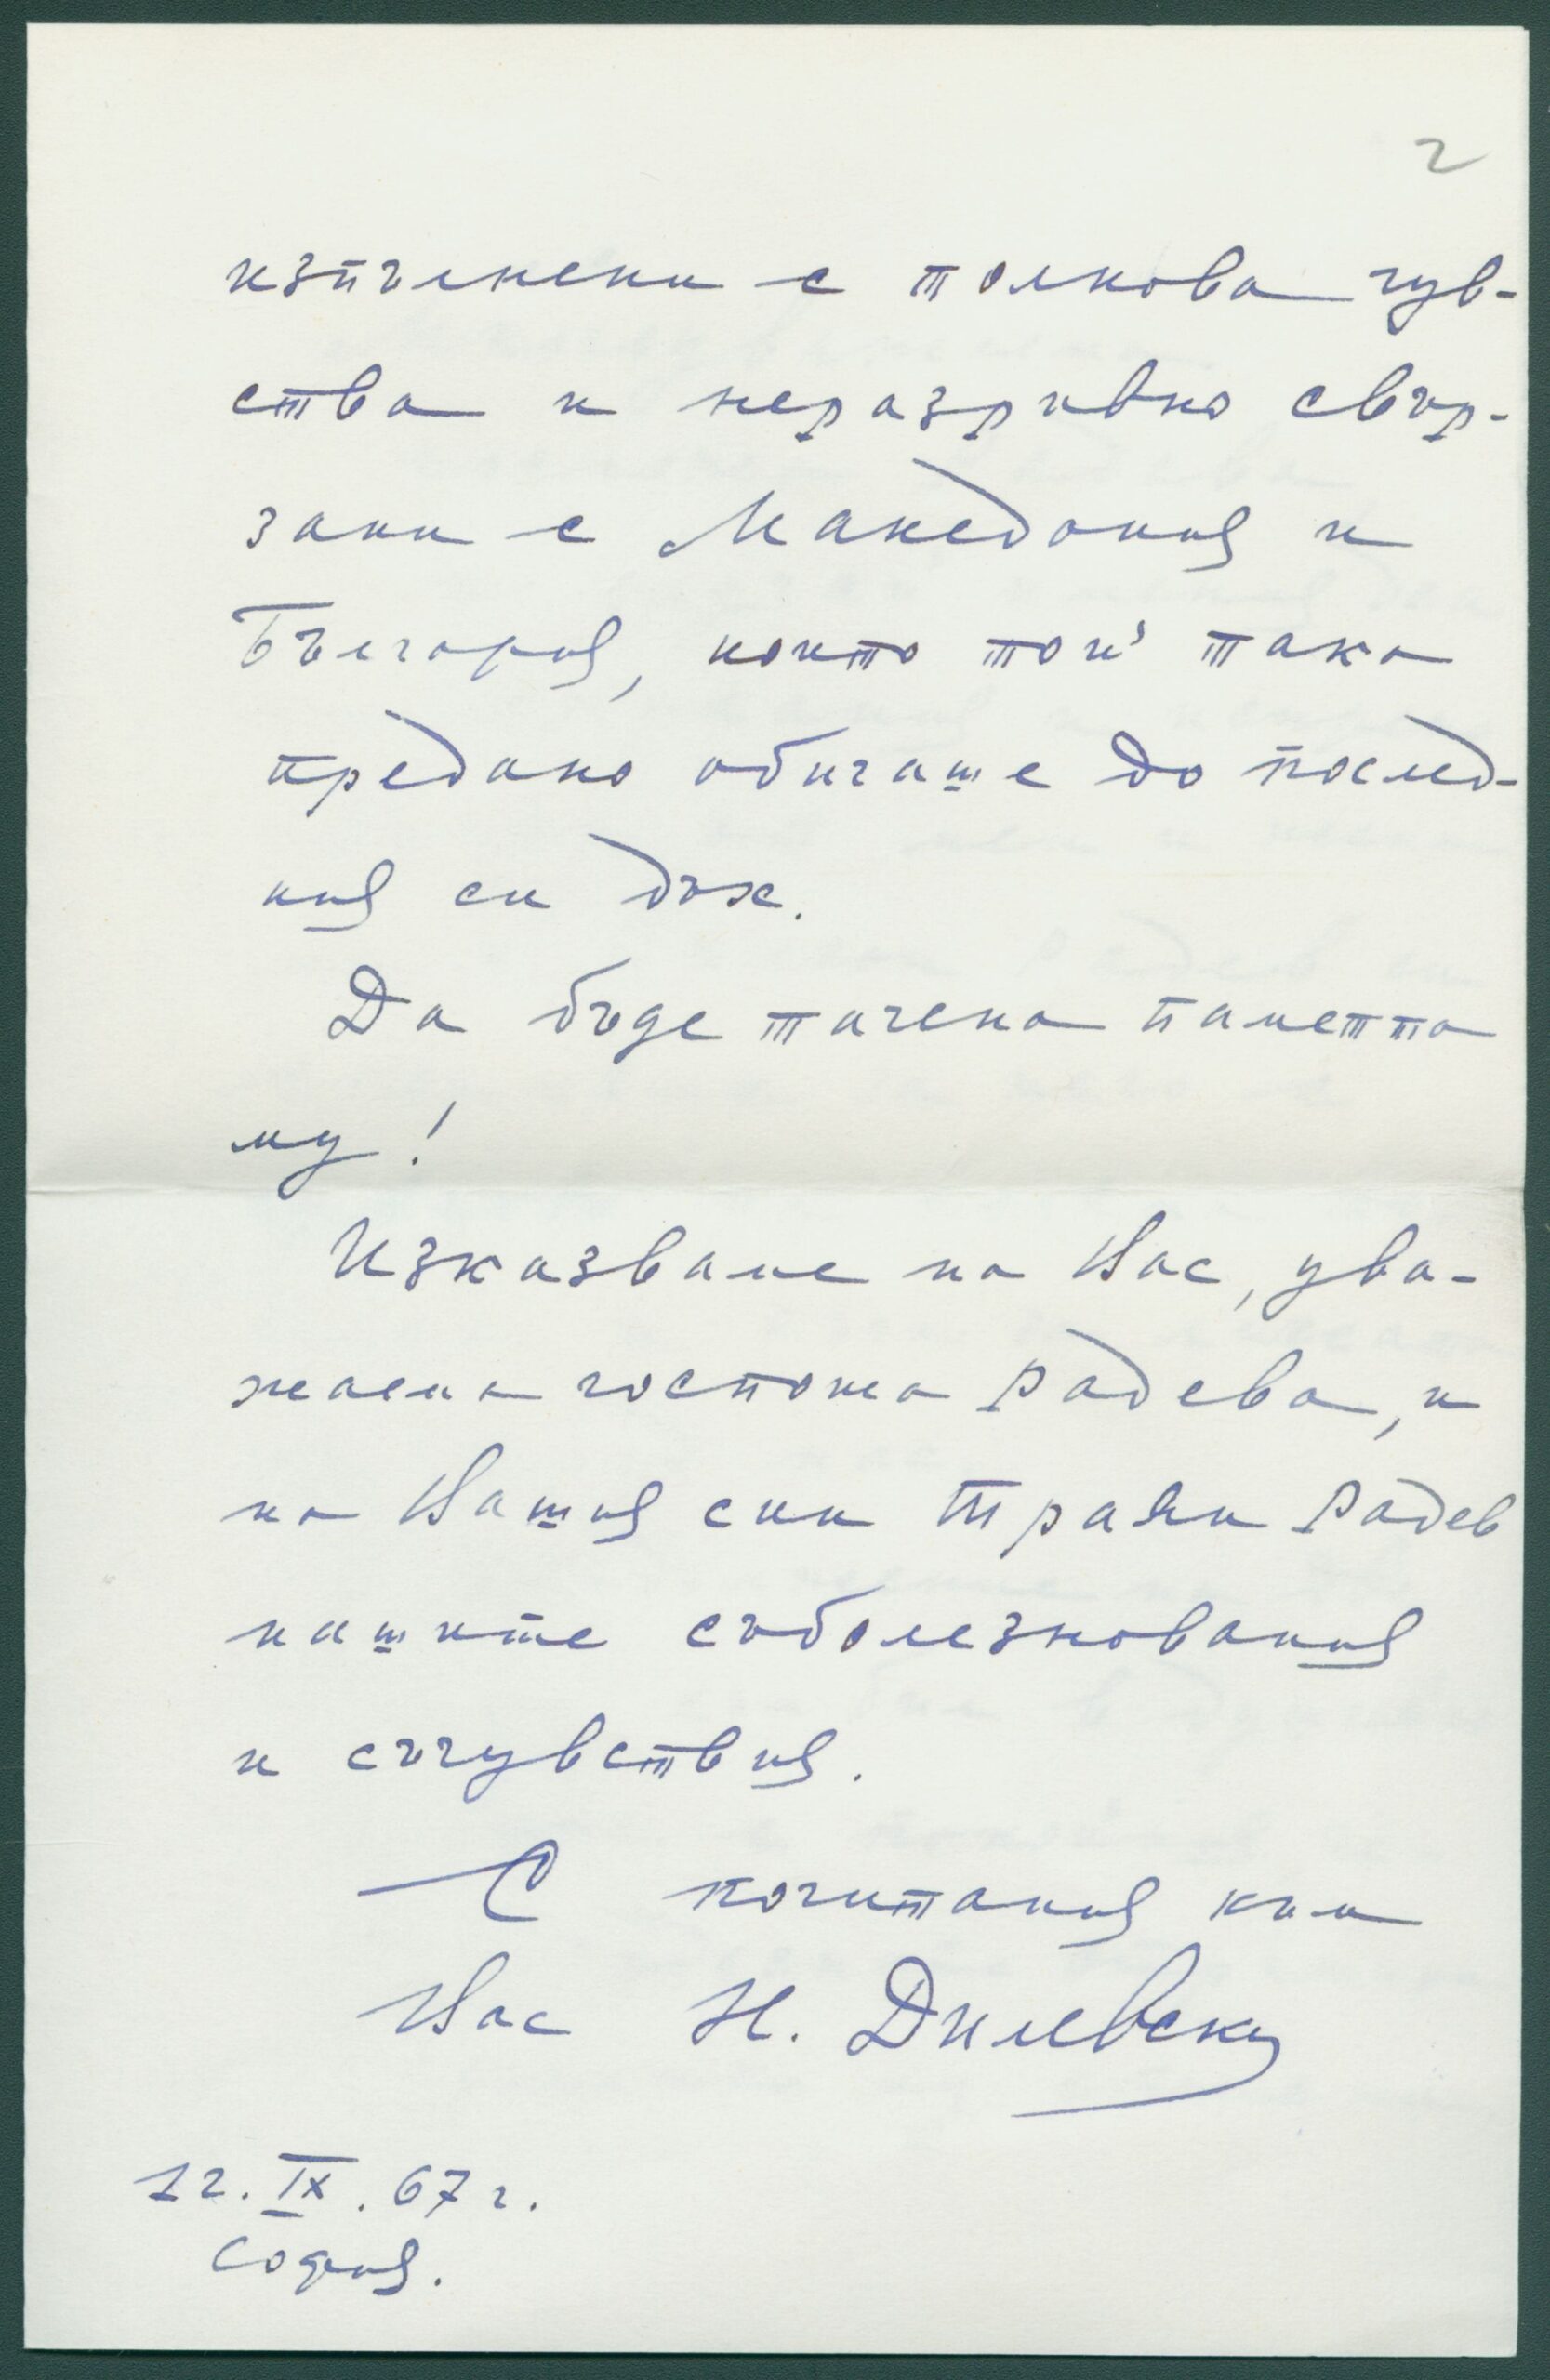 2
изпълнени с толкова чув-
ства и неразривно свър-
зани с Македония и
България, които той така
предано обичаше до послед-
ния си дъх.
Да бъде тачена паметта
му!
Изказваме на Вас, ува-
жаема госпожа Радева, и
на Вашия син Траян Радев
нашите съболезнования
и съчувствия.
С почитания към
Вас Н. Дилевски
12. IX. 67 г.
София.